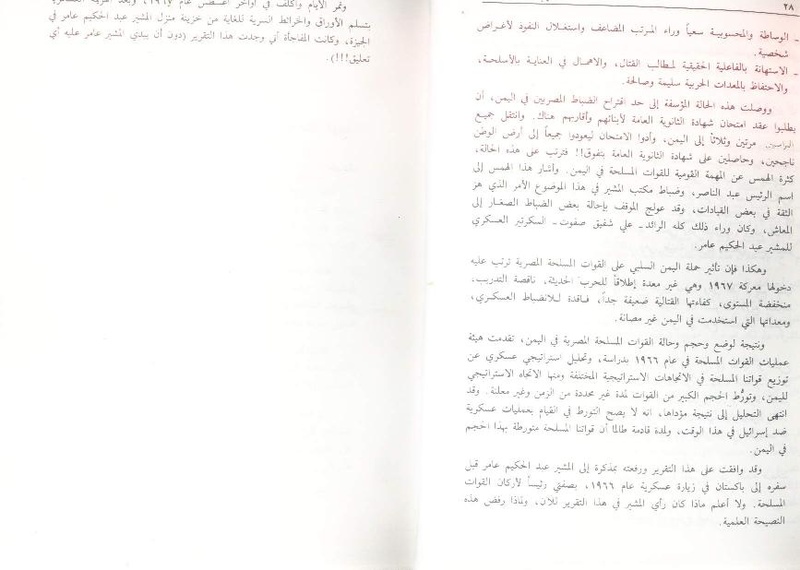 ٢٨
- الوساطة والمحسوبيـة سعياً وراء المرتب المضاعف واستغلال النفوذ لأغراض
شخصية.
- الاستهانة بالفاعلية الحقيقية لمطالب القتال، والاهمال في العناية بالأسلحة،
والاحتفاظ بالمعدات الحربية سليمة وصالحة.
ووصلت هذه الحالة المؤسفة إلى حد اقتراح الضباط المصريين في اليمن، أن
يطلبوا عقد امتحان شهادة الثانوية العامة لأبنائهم وأقاربهم هناك. وانتقل جميع
مرتين وثلاثاً إلى اليمن، وأدوا الامتحان ليعودوا جميعاً إلى أرض الوطن
ناجحين، وحاصلين على شهادة الثانوية العامة بتفوق!! فترتب على هذه الحالة،
كثرة الهمس عن المهمة القومية للقوات المسلحة في اليمن. وأشار هذا الهمس إلى
اسم الرئيس عبد الناصر، وضباط مكتب المشير في هذا الموضوع الأمر الذي هز
الثقة في بعض القيادات، وقد عولج الموقف بإحالة بعض الضباط الصغار إلى
المعاش، وكان وراء ذلك كله الرائد ـ علي شفيق صفوت ـ السكرتير العسكري
للمشير عبد الحكيم عامر.
وهكذا فإن تأثير حملة اليمن السلبي على القوات المسلحة المصرية ترتب عليه
دخولها معركة ١٩٦٧ وهي غير معدة إطلاقاً للحرب الحديثة، ناقصة التدريب،
منخفضة المستوى، كفاءتها القتالية ضعيفة جداً، فاقدة للانضباط العسكري،
ومعداتها التي استخدمت في اليمن غير مصانة.
ونتيجة لوضع وحجم وحالة القوات المسلحة المصرية في اليمن، تقدمت هيئة
عمليات القوات المسلحة في عام ١٩٦٦ بدراسة، وتحليل استراتيجي عسكري عن
توزيع قواتنا المسلحة في الاتجاهات الاستراتيجية المختلفة ومنها الاتجاه الاستراتيجي
لليمن، وتورُّط الحجم الكبير من القوات لمدة غير محددة من الزمن وغير معلنة. وقد
انتهى التحليل إلى نتيجة مؤداها، انه لا يصح التورط في القيام بعمليات عسكرية
ضد إسرائيل في هذا الوقت، ولمدة قادمة طالما أن قواتنا المسلحة متورطة بهذا الحجم
في اليمن.
وقد وافقت على هذا التقرير ورفعته بمذكرة إلى المشير عبد الحكيم عامر قبل
سفره إلى باكستان في زيارة عسكرية عام ١٩٦٦، بصفتي رئيساً لأركان القوات
المسلحة. ولا أعلم ماذا كان رأي المشير في هذا التقرير للآن، ولماذا رفض هذه
النصيحة العلمية.
وتمر الأيام وأكلف في أواخر أغسطس عام ١٩٦٧، وبعد
بتسلم الأوراق والخرائط السرية للغاية من خزينة منزل المشير عبد الحكيم عامر في
الجيزة، وكانت المفاجأة أني وجدت هذا التقرير (دون أن يبدي المشير عامر عليه أي
تعليق!!!).